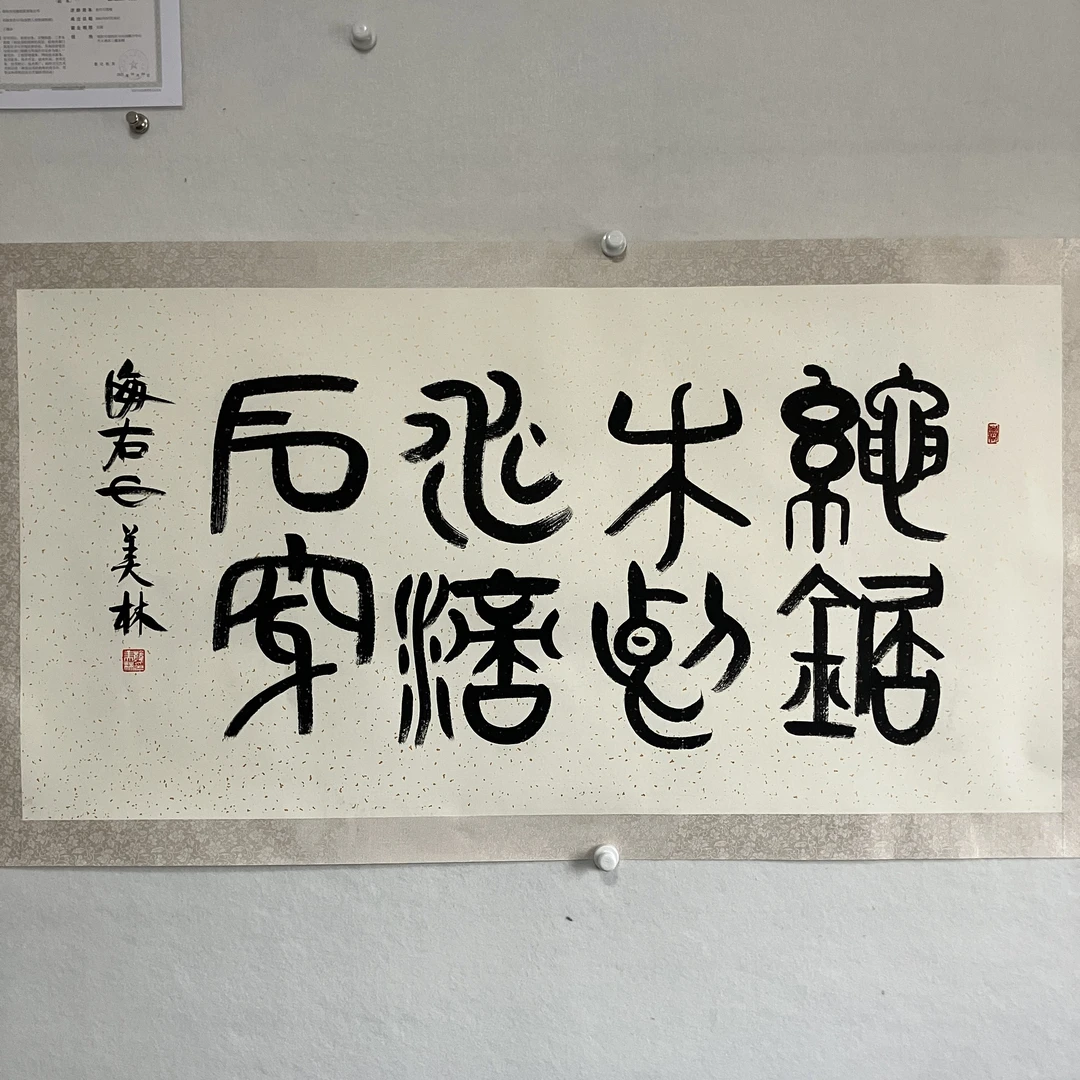 繩鋸
木斷
水滴
石穿
海右 美林